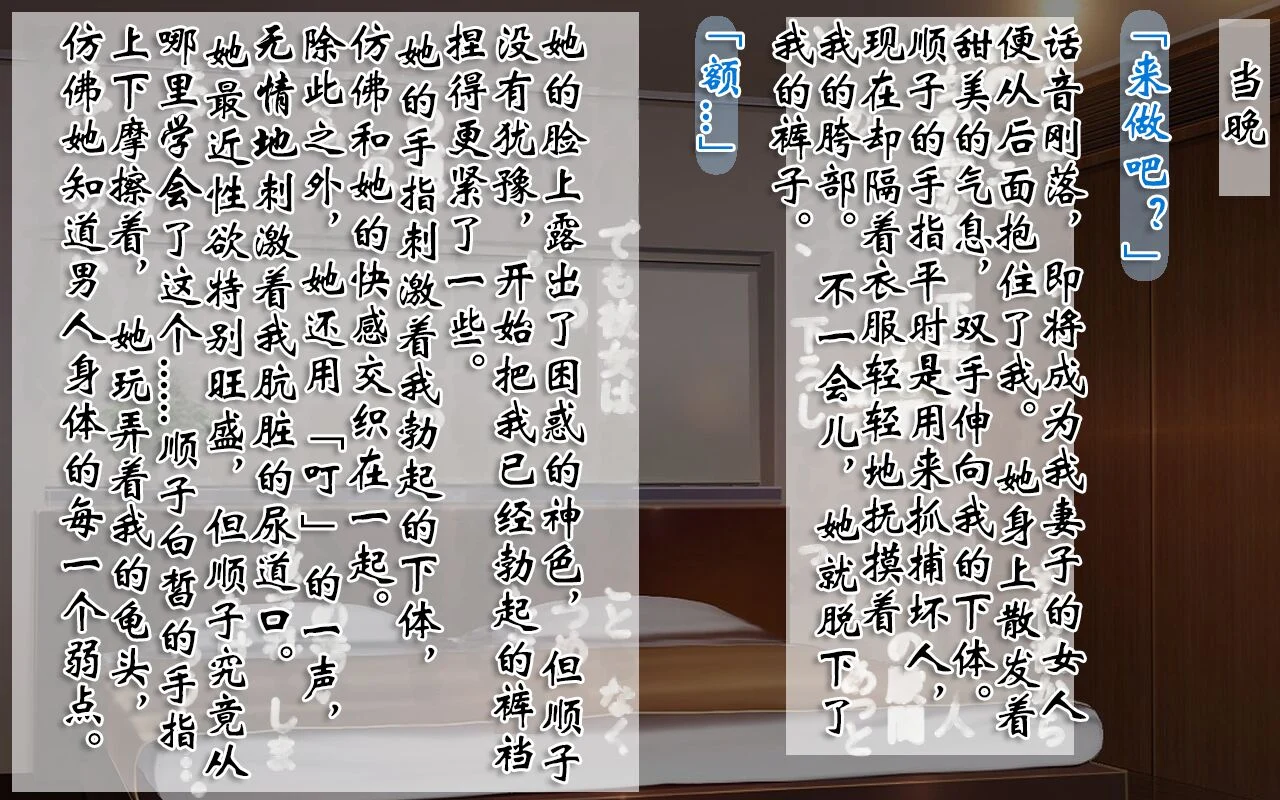 当晚
「来做吧？」
话音刚落，即将成为我妻子的女人
便从后面抱住了我。 她身上散发着
甜美的气息，双手伸向我的下体。
顺子的手指平时是用来抓捕坏人，
现在却隔着衣服轻轻地抚摸着
我的胯部。 不一会儿，她就脱下了
我的裤子。
「额…」
她的脸上露出了困惑的神色，但顺子
没有犹豫，开始把我已经勃起的裤裆
捏得更紧了一些。
她的手指刺激着我勃起的下体，
仿佛和她的快感交织在一起。
除此之外，她还用「叮」的一声，
无情地刺激着我肮脏的尿道口。
她最近性欲特别旺盛，但顺子究竟从
哪里学会了这个……顺子白皙的手指
上下摩擦着，她玩弄着我的龟头，
仿佛她知道男人身体的每一个弱点。